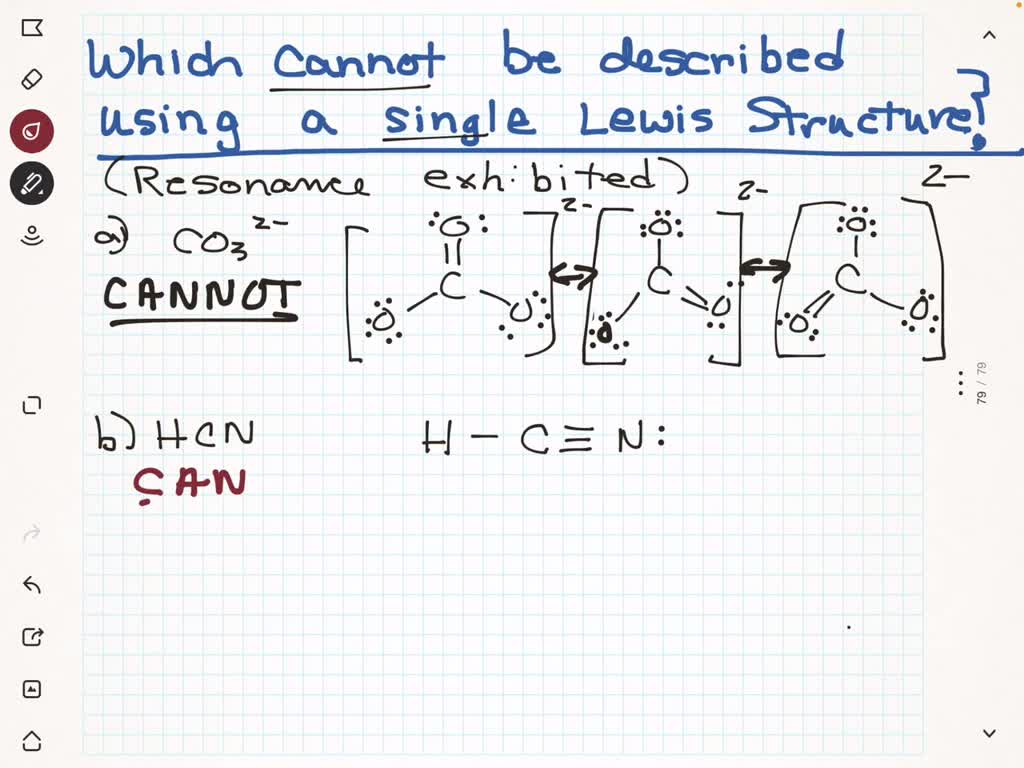 Which cannot be described
using a single Lewis Structure?
(Resonance exhibited)
a) CO₃²⁻
CANNOT
2- 2- 2-
O O O
C C C
O O O O O O
b) HCN H - C ≡ N:
CAN
79 / 79